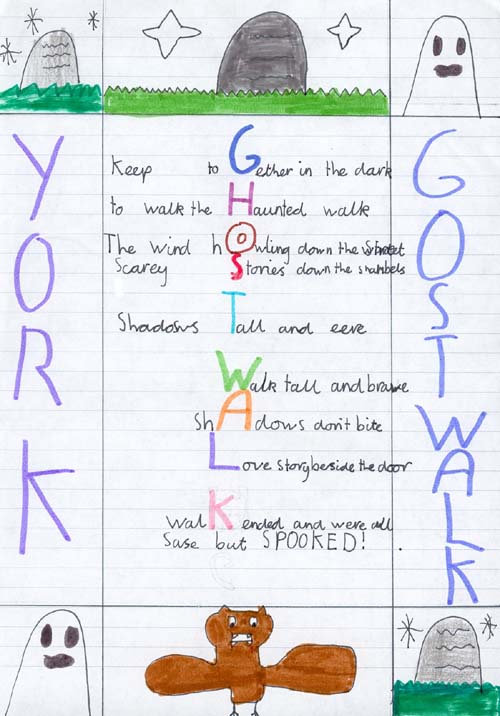 YORK
Keep toGether in the dark
to walk the Haunted walk
The wind hOwling down the street
Scarey Stories down the shambels
Shadows Tall and eere
Walk tall and brave
ShAdows don't bite
Love story beside the door
walK ended and were all
Sase but SPOOKED!
GOSTWALK